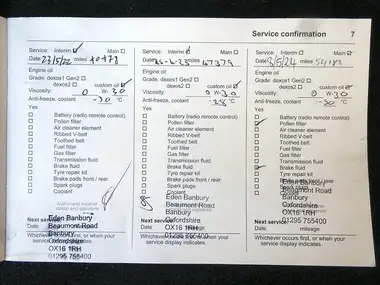 Service confirmation 7
Service: Interim ☑ Main ☐
Date 23/5/22 miles
Engine oil
Grade: dexos1 Gen2 ☐
dexos2 ☐ custom oil ☑
Viscosity: 0 W- 30
Anti-freeze, coolant -30 °C
Yes
☐ Battery (radio remote control)
☐ Pollen filter
☐ Air cleaner element
☐ Ribbed V-belt
☐ Toothed belt
☐ Fuel filter
☐ Gas filter
☐ Transmission fluid
☐ Brake fluid
☐ Tyre repair kit
☐ Brake pads front / rear
☐ Spark plugs
☐ Coolant
Authorised repairer
stamp and signature
Eden Banbury
Next service:
Beaumont Road
Banbury
Oxfordshire
OX16 1RH
01295 755400
Whichever occurs first, or when your
service display indicates.
Service: Interim ☐ Main ☑
Date 26-6-23 miles 47379
Engine oil
Grade: dexos1 Gen2 ☐
dexos2 ☐ custom oil ☑
Viscosity: 0 W- 30
Anti-freeze, coolant °C
Yes
☐ Battery (radio remote control)
☐ Pollen filter
☐ Air cleaner element
☐ Ribbed V-belt
☐ Toothed belt
☐ Fuel filter
☐ Gas filter
☐ Transmission fluid
☐ Brake fluid
☐ Tyre repair kit
☐ Brake pads front / rear
☐ Spark plugs
☐ Coolant
Eden Banbury
Beaumont Road
Banbury
Oxfordshire
Next service:
OX16 1RH
Date mileage
01295 755400
Whichever occurs first, or when your
service display indicates.
Service: Interim ☑ Main ☐
Date 3/5/24 miles
Engine oil
Grade: dexos1 Gen2 ☐
dexos2 ☐ custom oil ☑
Viscosity: 0 W- 30
Anti-freeze, coolant -30 °C
Yes
☐ Battery (radio remote control)
☑ Pollen filter
☐ Air cleaner element
☐ Ribbed V-belt
☐ Toothed belt
☐ Fuel filter
☐ Gas filter
☐ Transmission fluid
☑ Brake fluid
☐ Tyre repair kit
☐ Brake pads front / rear
☐ Spark plugs
☐ Coolant
Eden Banbury
Beaumont Road
Banbury
Oxfordshire
OX16 1RH
01295 755400
Next service:
Date mileage
Whichever occurs first, or when your
service display indicates.